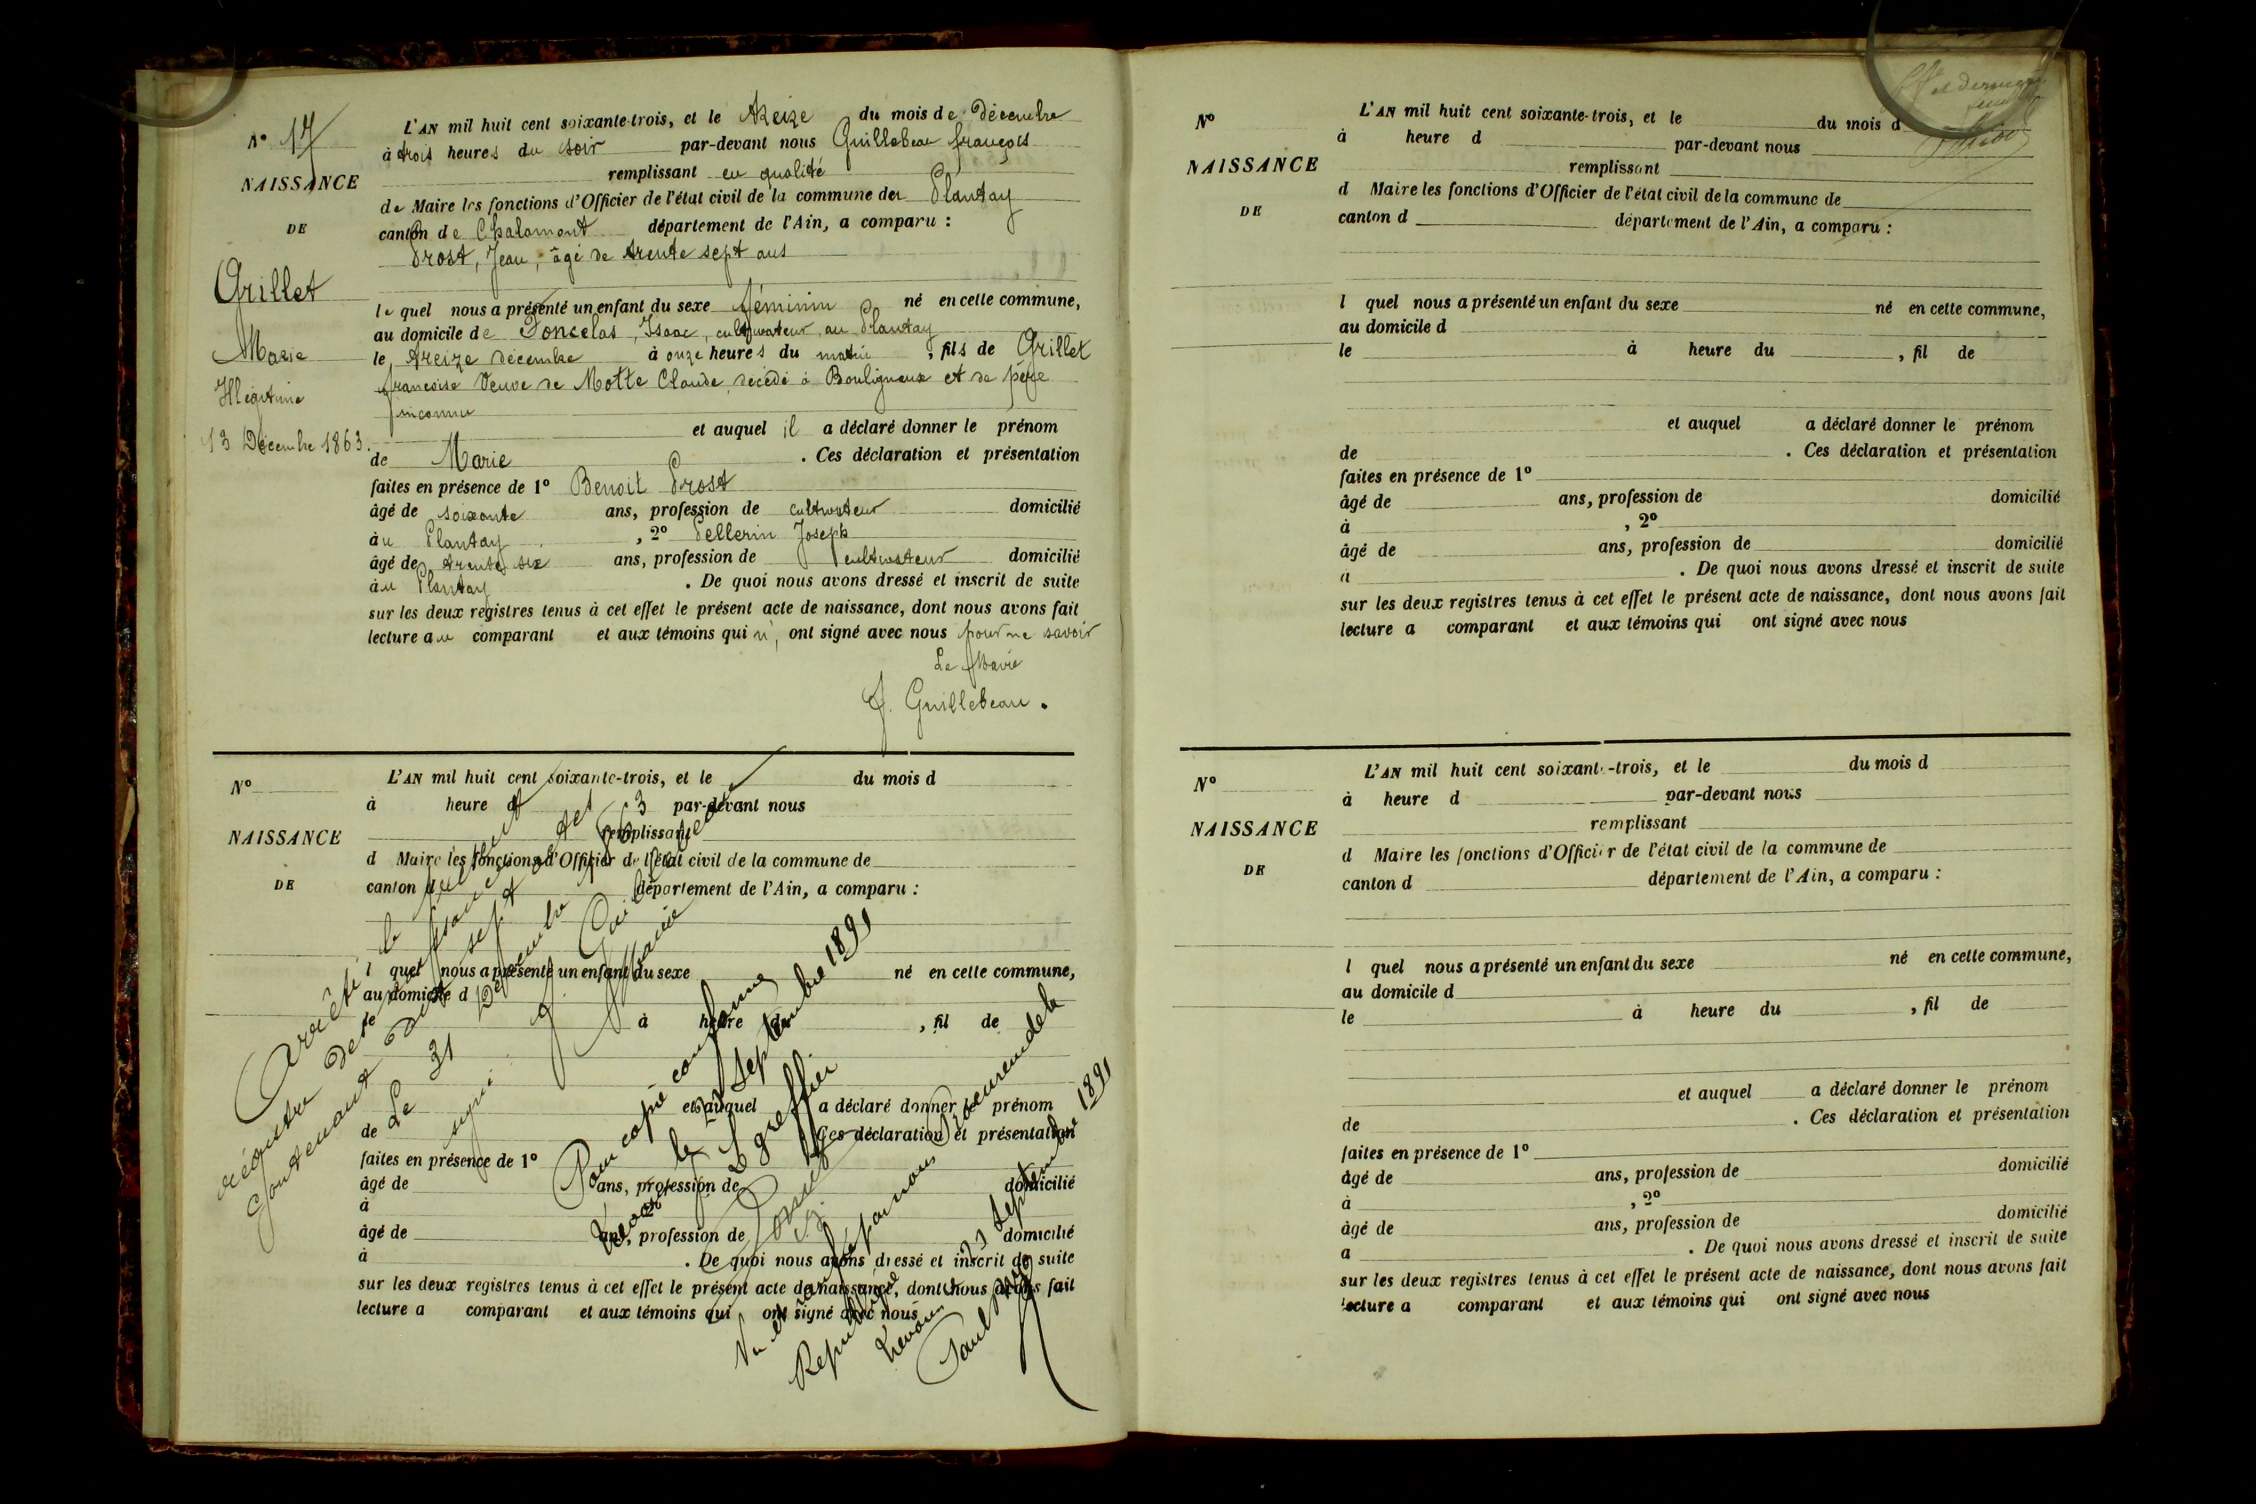 N° 17
NAISSANCE
DE
Grillet
Marie
Illégitime
13 Décembre 1863.
L'AN mil huit cent soixante-trois, et le treize du mois de Décembre
à trois heures du soir par-devant nous Guillebeau françois
remplissant en qualité
de Maire les fonctions d'Officier de l'état civil de la commune du Plantay
canton de Chalamont département de l'Ain, a comparu :
Prost, Jean, âgé de trente sept ans
le quel nous a présenté un enfant du sexe féminin né en cette commune,
au domicile de Poncelas, Isaac, cultivateur au Plantay
le treize décembre à onze heures du matin, fils de Grillet
françoise Veuve de Motte Claude, décédé à Bouligneux et de père
inconnu
et auquel il a déclaré donner le prénom
de Marie . Ces déclaration et présentation
faites en présence de 1° Benoit Prost
âgé de soixante ans, profession de cultivateur domicilié
au Plantay , 2° Pellerin Joseph
âgé de trente six ans, profession de cultivateur domicilié
au Plantay . De quoi nous avons dressé et inscrit de suite
sur les deux registres tenus à cet effet le présent acte de naissance, dont nous avons fait
lecture au comparant et aux témoins qui n'ont signé avec nous pour ne savoir
Le Maire
f. Guillebeau.
N°
NAISSANCE
DE
L'AN mil huit cent soixante-trois, et le du mois d
à heure d par-devant nous
remplissant
d Maire les fonctions d'Officier de l'état civil de la commune de
canton d département de l'Ain, a comparu :
l quel nous a présenté un enfant du sexe né en cette commune,
au domicile d
le à heure du , fil de
et auquel a déclaré donner le prénom
de . Ces déclaration et présentation
faites en présence de 1°
âgé de ans, profession de domicilié
à
âgé de ans, profession de domicilié
à . De quoi nous avons dressé et inscrit de suite
sur les deux registres tenus à cet effet le présent acte de naissance, dont nous avons fait
lecture a comparant et aux témoins qui ont signé avec nous
Arrêté le présent
régistre des naissances
contenant dix sept actes
Le 31 Décembre 1863
signé : f. Guillebeau
Maire
Pour copie conforme
Trévoux le 21 Septembre 1891
Le greffier
Vu et vérifié par nous Procureur de la
République
Trévoux 21 Septembre 1891
N°
NAISSANCE
DE
L'AN mil huit cent soixante-trois, et le du mois d
à heure d par-devant nous
remplissant
d Maire les fonctions d'Officier de l'état civil de la commune de
canton d département de l'Ain, a comparu :
l quel nous a présenté un enfant du sexe né en cette commune,
au domicile d
le à heure du , fil de
et auquel a déclaré donner le prénom
de . Ces déclaration et présentation
faites en présence de 1°
âgé de ans, profession de domicilié
à , 2°
âgé de ans, profession de domicilié
à . De quoi nous avons dressé et inscrit de suite
sur les deux registres tenus à cet effet le présent acte de naissance, dont nous avons fait
lecture a comparant et aux témoins qui ont signé avec nous
N°
NAISSANCE
DE
L'AN mil huit cent soixante-trois, et le du mois d
à heure d par-devant nous
remplissant
d Maire les fonctions d'Officier de l'état civil de la commune de
canton d département de l'Ain, a comparu :
l quel nous a présenté un enfant du sexe né en cette commune,
au domicile d
le à heure du , fil de
et auquel a déclaré donner le prénom
de . Ces déclaration et présentation
faites en présence de 1°
âgé de ans, profession de domicilié
à , 2°
âgé de ans, profession de domicilié
a . De quoi nous avons dressé et inscrit de suite
sur les deux registres tenus à cet effet le présent acte de naissance, dont nous avons fait
lecture a comparant et aux témoins qui ont signé avec nous